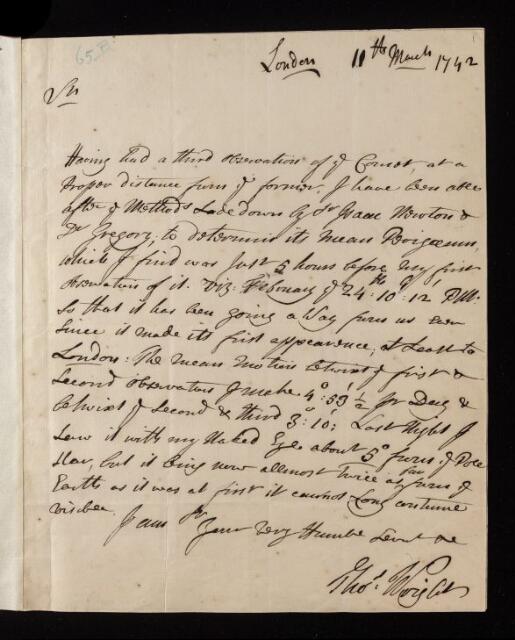 65
London 11th March 1742
Sr
Having had a third observation of ye Comet, at a
proper distance from ye former, I have been able
after ye Methods Lade down by Sr Isaac Newton &
Dr Gregory; to determin its mean Perigaeum,
which I find was Just 5 hours before my first
observation of it. Viz. February ye 24th: 10h: 12' P.M.
So that it has been going a Way from us ever
Since it made its first appearence, at Least to
London: The mean motion betwixt ye first &
Second observation I make 4°: 53' ½ pr Day &
betwixt ye Second & third 3°: 10'; Last Night I
Saw it with my Naked Eye about 5° from ye Pole
Star, but it being now allmost twice as far from ye
Earth as it was at first it cannot Long continue
visible.
I am Sr
Your Very Humble Servt
Thos. Wright